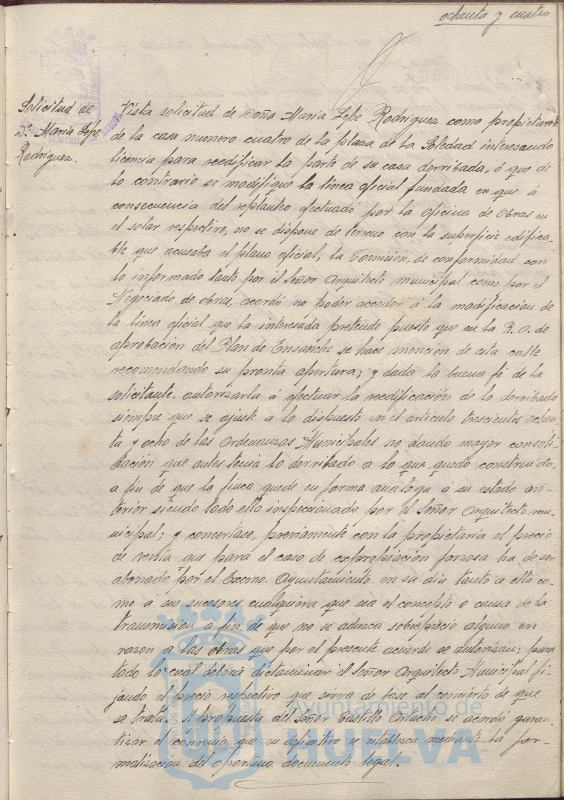 ochenta y cuatro
Solicitud de
D.ª Maria Lepe
Rodriguez.
Vista solicitud de Doña Maria Lepe Rodriguez como propietaria
de la casa numero cuatro de la plaza de la Soledad interesando
licencia para reedificar la parte de su casa derribada, ó que de
lo contrario se modifique la linea oficial fundada en que á
consecuencia del replanteo efectuado por la oficina de obras en
el solar respectivo, no se dispone de terreno con la superficie edifica-
ble que acusaba el plano oficial, la Comision, de conformidad con
lo informado tanto por el Señor Arquitecto municipal como por el
Negociado de obras, acordó no poder acceder á la modificacion de
la linea oficial que la interesada pretende puesto que en la R.O. de
aprobacion del Plan de Ensanche se hace mencion de esta calle
recomendando su pronta apertura; y dada la buena fé de la
solicitante, autorizarla á efectuar la reedificacion de lo derribado
siempre que se ajuste a lo dispuesto en el articulo trescientos ochen-
ta y ocho de las Ordenanzas Municipales no dando mayor consoli-
dacion que antes tenia lo derribado a lo que quedó construido,
a fin de que la finca quede en forma análoga á su estado an-
terior siendo todo ello inspeccionado por el Señor Arquitecto mu-
nicipal; y concertase, previamente con la propietaria el precio
de venta que para el caso de expropiación forzosa ha de ser
abonado por el Excmo. Ayuntamiento en su dia tanto a ella co-
mo á sus sucesores cualquiera que sea el concepto o causa de la
transmision a fin de que no se aduzca sobreprecio alguno en
razon a las obras que por el presente acuerdo se autorizan; para
todo lo cual deberá dictaminar el Señor Arquitecto Municipal fi-
jando el precio respectivo que sirva de base al concierto de que
se trata. A propuesta del Señor Castilla se acordó garan-
tizar el convenio que en definitiva se establezca mediante la for-
malizacion del oportuno documento legal.
Ayuntamiento de
HUELVA